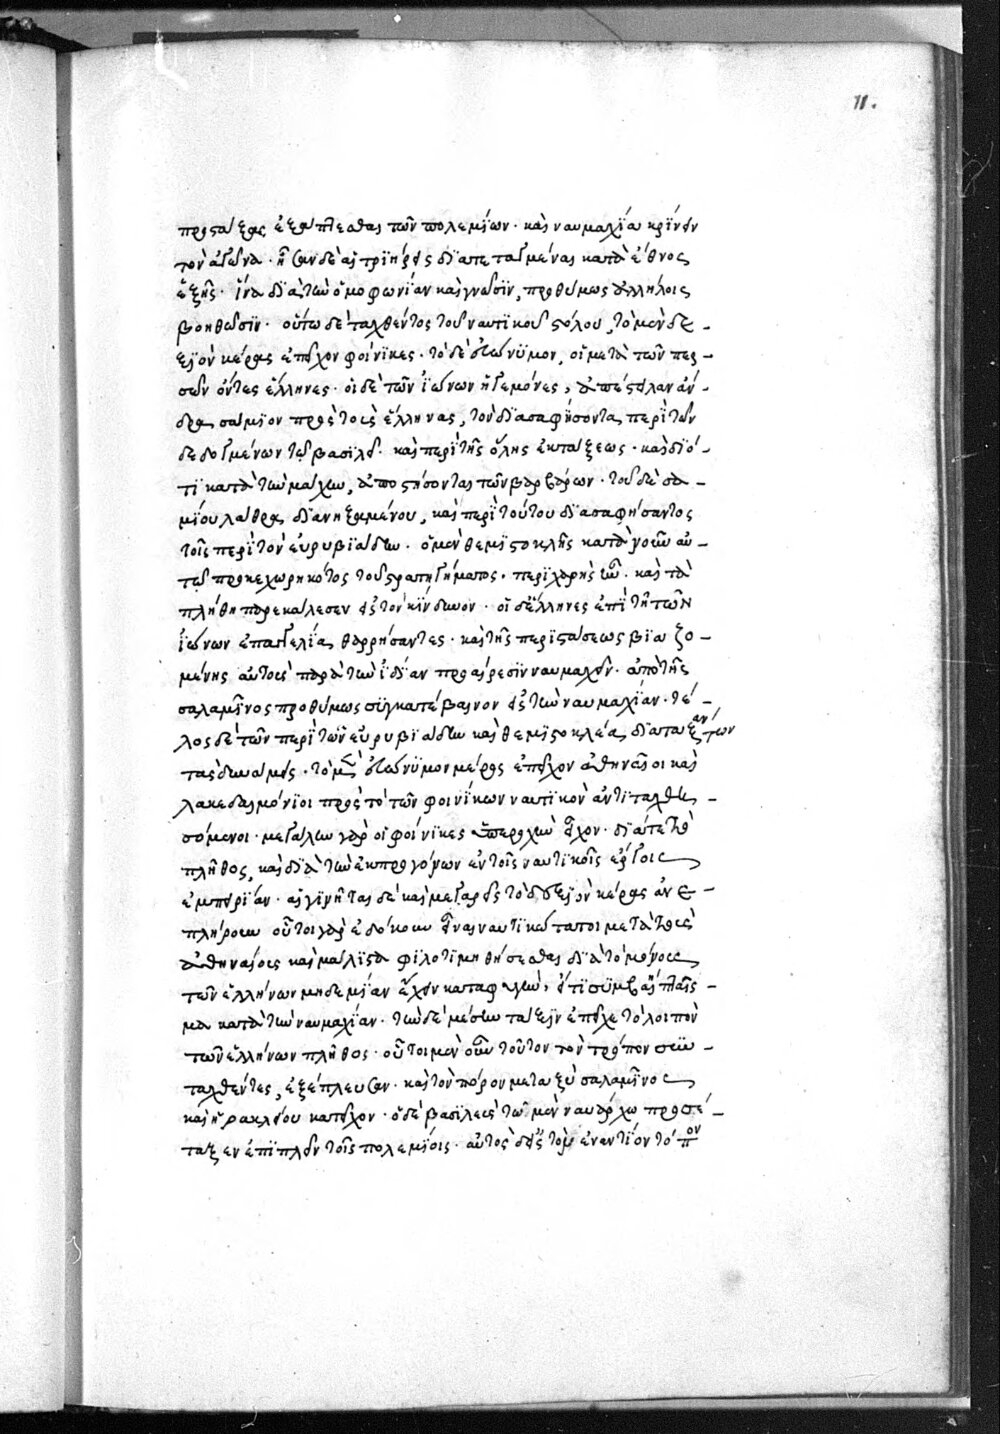 11.
προστάξας ἐξαπλέσθαι τῶν πολεμίων· καὶ ναυμαχία κρίνειν
τὸν ἀγῶνα· ἦσαν δὲ αἱ τριήρεις διαπεταγμέναι κατὰ ἔθνος
ἑξῆς· ἵνα διὰ τὴν ὁμοφωνίαν καὶ γνῶσιν, προθύμως ἀλλήλοις
βοηθῶσιν· οὕτω δὲ ταχθέντος τοῦ ναυτικοῦ στόλου, τὸ μὲν δε-
ξιὸν κέρας ἐπεῖχον φοίνικες· τὸ δὲ εὐώνυμον, οἱ μετὰ τῶν περ-
σῶν ὄντες ἕλληνες· οἱ δὲ τῶν ἰώνων ἡγεμόνες, ἀπέστειλαν ἄν-
δρα σάμιον πρὸς τοὺς ἕλληνας, τὸν διασαφήσοντα περὶ τῶν
δεδογμένων τῷ βασιλεῖ· καὶ περὶ τῆς ὅλης ἐκτάξεως· καὶ διό-
τι κατὰ τὴν μάχην, ἀποστήσονται τῶν βαρβάρων· τοῦ δὲ σα-
μίου λάθρα διανηξαμένου, καὶ περὶ τούτου διασαφήσαντος
τοῖς περὶ τὸν εὐρυβιάδην· ὁ μὲν θεμιστοκλῆς κατὰ νοῦν αὐ-
τῷ προκεχωρηκότος τοῦ στρατηγήματος, περιχαρὴς ἦν· καὶ τὰ
πλήθη παρεκάλεσεν εἰς τὸν κίνδυνον· οἱ δ' ἕλληνες ἐπὶ τῇ τῶν
ἰώνων ἐπαγγελία θαρρήσαντες· καὶ τῆς περιστάσεως βιαζο-
μένης αὐτοὺς παρὰ τὴν ἰδίαν προαίρεσιν ναυμαχεῖν· ἀπὸ τῆς
σαλαμῖνος προθύμως συγκατέβαινον εἰς τὴν ναυμαχίαν· τέ-
λος δὲ τῶν περὶ τὸν εὐρυβιάδην καὶ θεμιστοκλέα διαταξάντων
τὰς δυνάμεις· τὸ μὲν εὐώνυμον μέρος ἐπεῖχον ἀθηναῖοι καὶ
λακεδαιμόνιοι πρὸς τὸ τῶν φοινίκων ναυτικὸν ἀντιταχθη-
σόμενοι· μεγάλην γὰρ οἱ φοίνικες ὑπεροχὴν εἶχον· διά τε τὸ
πλῆθος, καὶ διὰ τὴν ἐκ προγόνων ἐν τοῖς ναυτικοῖς ἔργοις
ἐμπειρίαν· αἰγινῆται δὲ καὶ μεγαρεῖς τὸ δεξιὸν κέρας ἀνε-
πλήρουν οὗτοι γὰρ ἐδόκουν εἶναι ναυτικώτατοι μετὰ τοὺς
ἀθηναίους καὶ μάλιστα φιλοτιμηθήσεσθαι διὰ τὸ μόνους
τῶν ἑλλήνων μηδεμίαν ἔχειν καταφυγὴν, εἴ τι συμβαίη πταῖς-
μα κατὰ τὴν ναυμαχίαν· τὴν δὲ μέσην τάξιν ἐπεῖχε τὸ λοιπὸν
τῶν ἑλλήνων πλῆθος· οὗτοι μὲν οὖν τοῦτον τὸν τρόπον συν-
ταχθέντες, ἐξέπλευσαν· καὶ τὸν πόρον μεταξὺ σαλαμῖνος
καὶ ἡρακλείου κατεῖχον· ὁ δὲ βασιλεὺς τῷ μὲν ναυάρχω προσέ-
ταξεν ἐπιπλεῖν τοῖς πολεμίοις· αὐτὸς δ' εἰς τὸν ἐναντίον τόπον